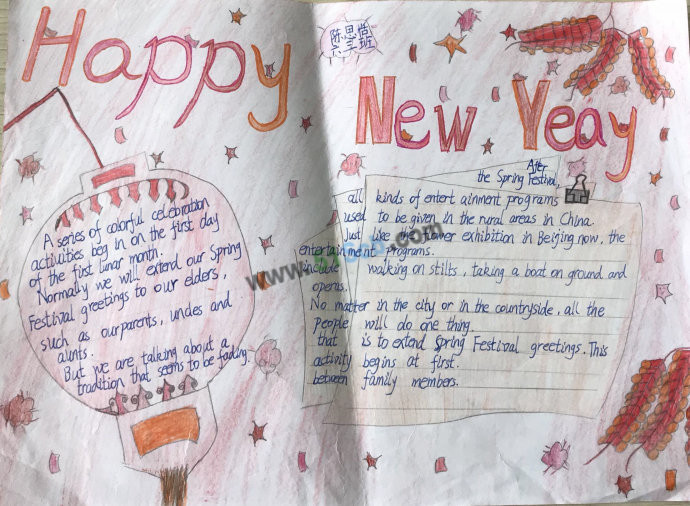 Happy
陈思恬
六三班
New Yeay
A series of colorful celebration
activities beg in on the first day
of the first lunar month.
Normally we will extend our Spring
Festival greetings to our elders,
such as ourparents, uncles and
aunts.
But we are talking about a
tradition that seems to be fading.
After
the Spring Festival,
all kinds of entert ainment programs
used to be given in the rural areas in China
Just like the flower exhibition in Beijing now, the
entertainment programs.
include walking on stilts, taking a boat on ground and
operas.
No matter in the city or in the countryside, all the
people will do one thing.
that is to extend Spring Festival greetings. This
activity begins at first.
between family members.